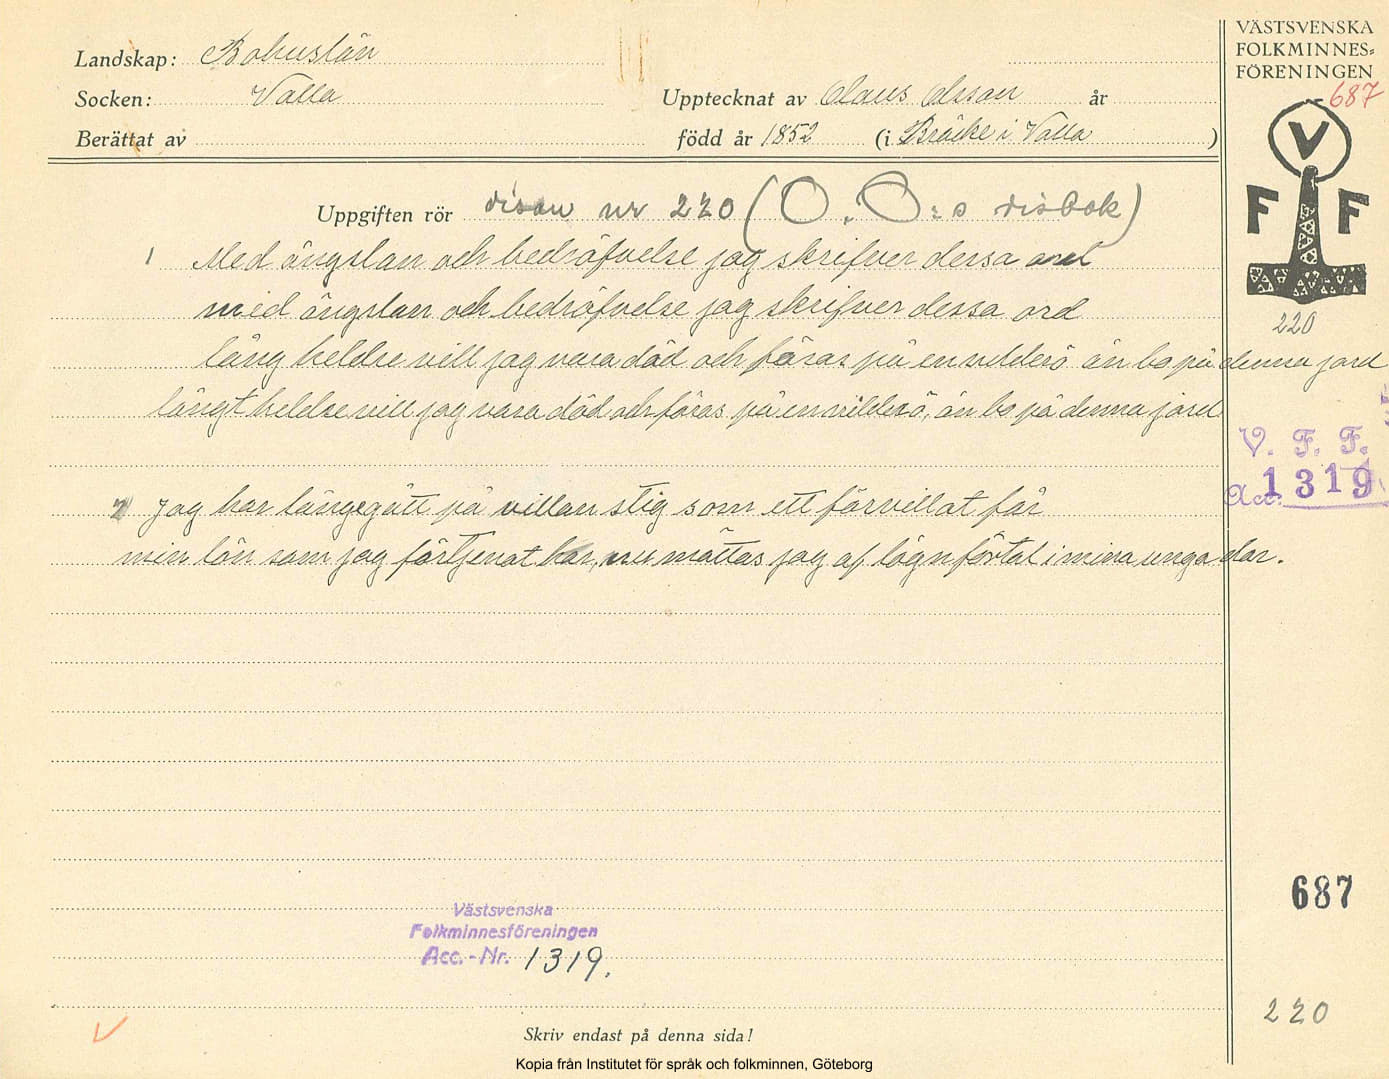 VÄSTSVENSKA
FOLKMINNES=
FÖRENINGEN
687
V
F F
220
V. F. F.
Acc. 1319
Landskap: Bohuslän
Socken: Valla
Upptecknat av Olaus Olsson år
Berättat av
född år 1852 (i Bräcke i Valla)
Uppgiften rör visan nr 220 (O. O:s visbok)
1 Med ängslan och bedröfvelse jag skrifver dessa ord
med ängslan och bedröfvelse jag skrifver dessa ord
lång heldre vill jag vara död och föras på en vilderö än bo på denna jord
långt heldre vill jag vara död och föras på en vilderö, än bo på denna jord
2 Jag har länge gått på villan stig som ett förvillat får
min lön som jag förtjenat har, nu mättas jag af lögnförtal i mina unga dar.
Västsvenska
Folkminnesföreningen
Acc.-Nr. 1319.
687
220
Skriv endast på denna sida!
Kopia från Institutet för språk och folkminnen, Göteborg